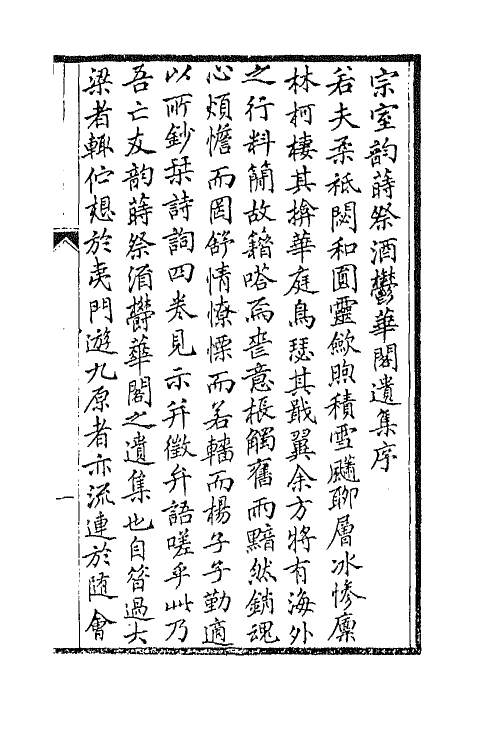 宗室韵蒔祭酒鬱華閣遺集序
若夫柔祇閟和圓靈歛煦積雪飀聊層冰慘廩
林柯棲其揜華庭鳥瑟其戢翼余方將有海外
之行料簡故籍嗒焉喪意棖觸舊雨黯然銷魂
心煩憺而罔舒情憭慄而若轖而楊子子勤適
以所鈔琹詩詞四卷見示并徵弁語嗟乎此乃
吾亡友韵蒔祭酒鬱華閣之遺集也自昔過大
梁者輒佇想於夷門遊九原者亦流連於隨會
一